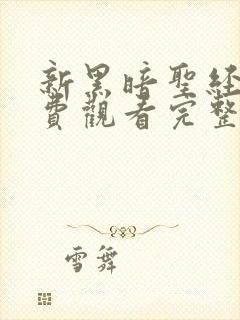 新黑暗聖經
費觀看完整
雪舞